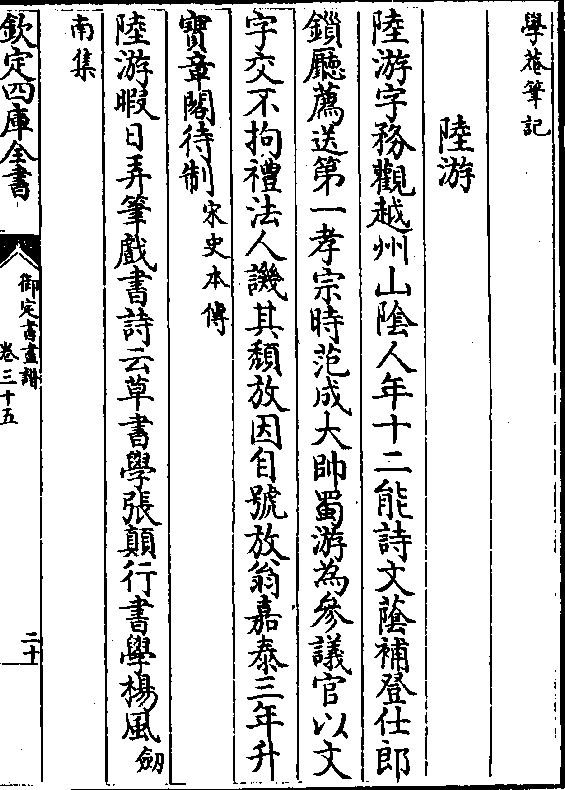 學菴筆記
陸游
陸游字務觀越州山陰人年十二能詩文蔭補登仕郎
鎖廳薦送第一孝宗時范成大帥蜀游為參議官以文
字交不拘禮法人譏其頽放因自號放翁嘉泰三年升
寶章閣待制宋史本傳
陸游暇日弄筆戲書詩云草書學張顛行書學楊風劒
南集
欽定四庫全書
御定書畫譜
卷三十五
二十